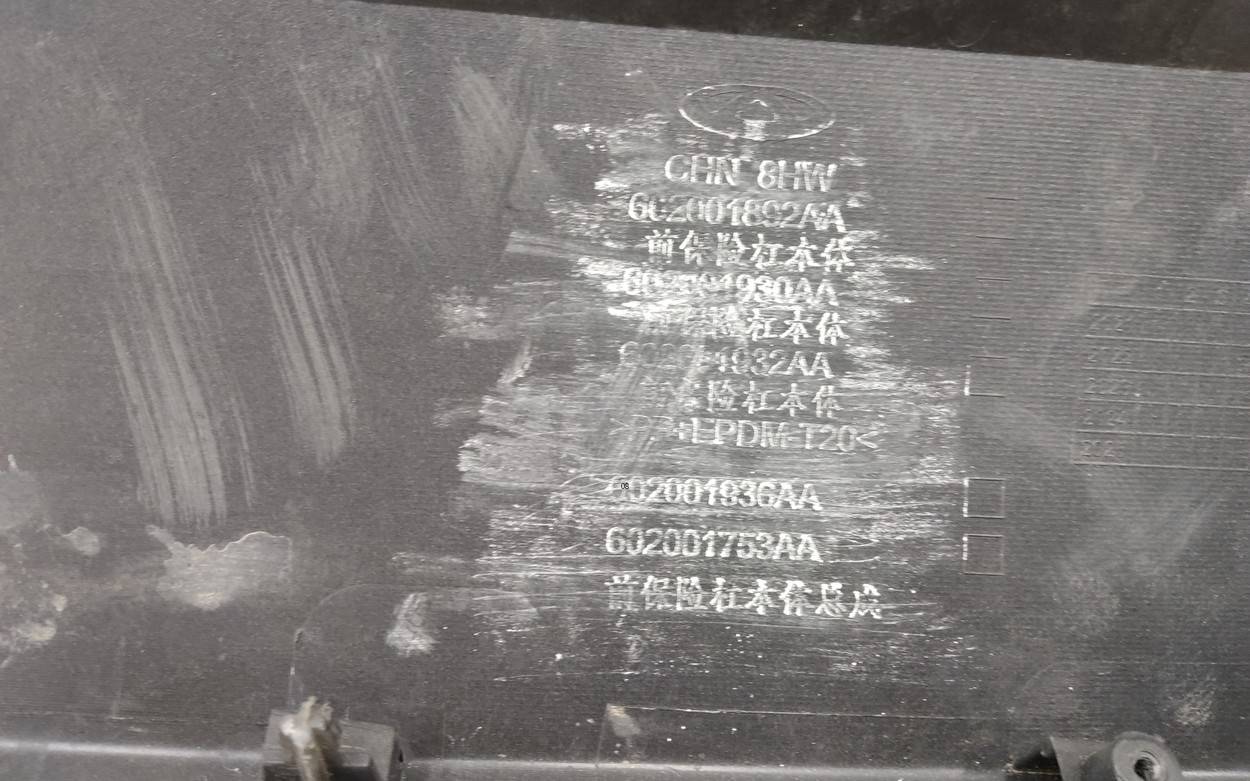 CHN 8HW
602001892AA
前保险杠本体
602001930AA
前保险杠本体
4932AA
险杠本体
EPDM-T20<
08
602001936AA
602001753AA
前保险杠本体总成